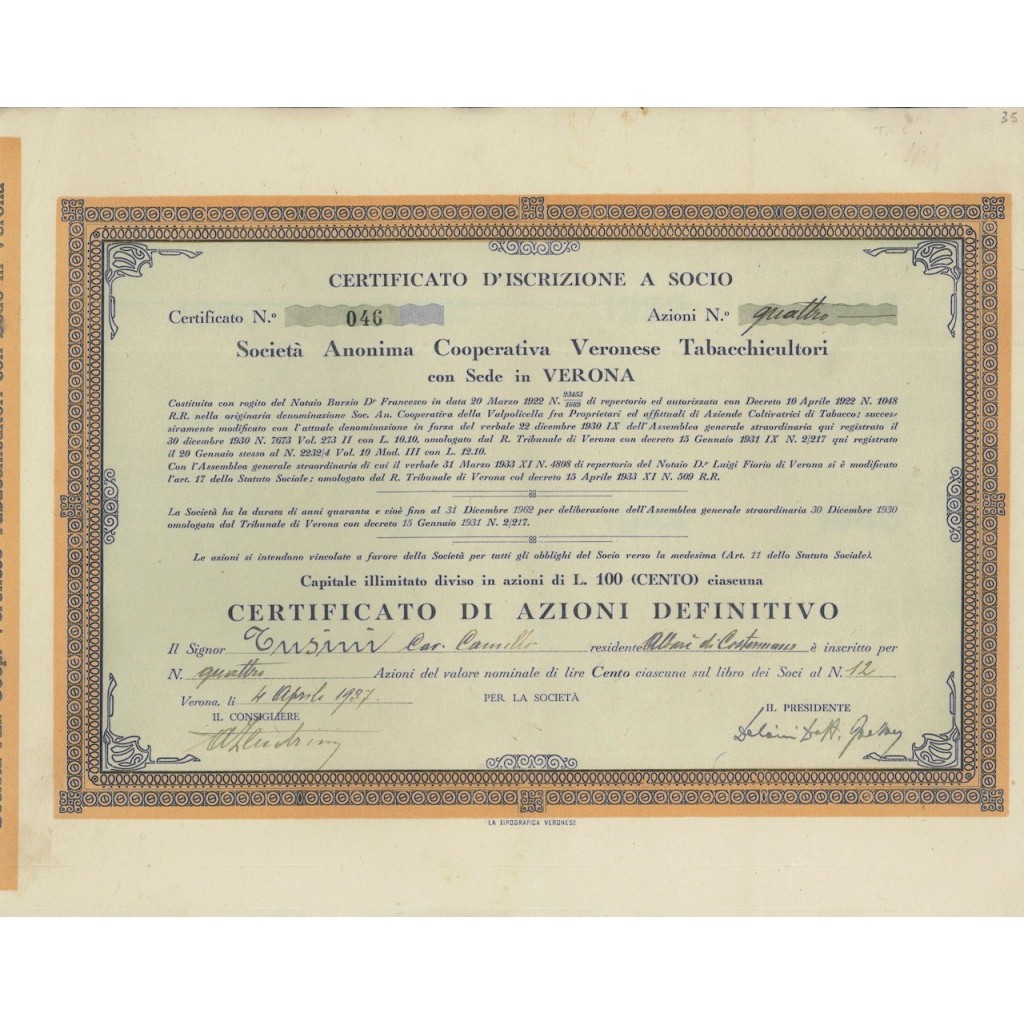 35
CERTIFICATO D'ISCRIZIONE A SOCIO
Certificato N.º 046 Azioni N.º quattro
Società Anonima Cooperativa Veronese Tabacchicultori
con Sede in VERONA
Costituita con rogito del Notaio Burzio Dr Francesco in data 20 Marzo 1922 N. 93453/1089 di repertorio ed autorizzata con Decreto 10 Aprile 1922 N. 1048
R.R. nella originaria denominazione Soc. An. Cooperativa della Valpolicella fra Proprietari ed affittuali di Aziende Coltivatrici di Tabacco; succes-
sivamente modificato con l'attuale denominazione in forza del verbale 22 dicembre 1930 IX dell'Assemblea generale straordinaria qui registrato il
30 dicembre 1930 N. 7673 Vol. 273 II con L. 10.10, omologato dal R. Tribunale di Verona con decreto 15 Gennaio 1931 IX N. 2/217 qui registrato
il 20 Gennaio stesso al N. 2232/4 Vol. 10 Mod. III con L. 12.10.
Con l'Assemblea generale straordinaria di cui il verbale 31 Marzo 1933 XI N. 4808 di repertorio del Notaio D.r Luigi Fiorio di Verona si è modificato
l'art. 17 dello Statuto Sociale; omologato dal R. Tribunale di Verona col decreto 15 Aprile 1933 XI N. 509 R.R.
La Società ha la durata di anni quaranta e cioè fino al 31 Dicembre 1962 per deliberazione dell'Assemblea generale straordinaria 30 Dicembre 1930
omologata dal Tribunale di Verona con decreto 15 Gennaio 1931 N. 2/217.
Le azioni si intendono vincolate a favore della Società per tutti gli obblighi del Socio verso la medesima (Art. 11 dello Statuto Sociale).
Capitale illimitato diviso in azioni di L. 100 (CENTO) ciascuna
CERTIFICATO DI AZIONI DEFINITIVO
Il Signor Tusini Cav. Camillo residente Albarè di Costermano è inscritto per
N. quattro Azioni del valore nominale di lire Cento ciascuna sul libro dei Soci al N. 12
Verona, li 4 Aprile 1937. PER LA SOCIETÀ
IL CONSIGLIERE IL PRESIDENTE
LA TIPOGRAFICA VERONESE